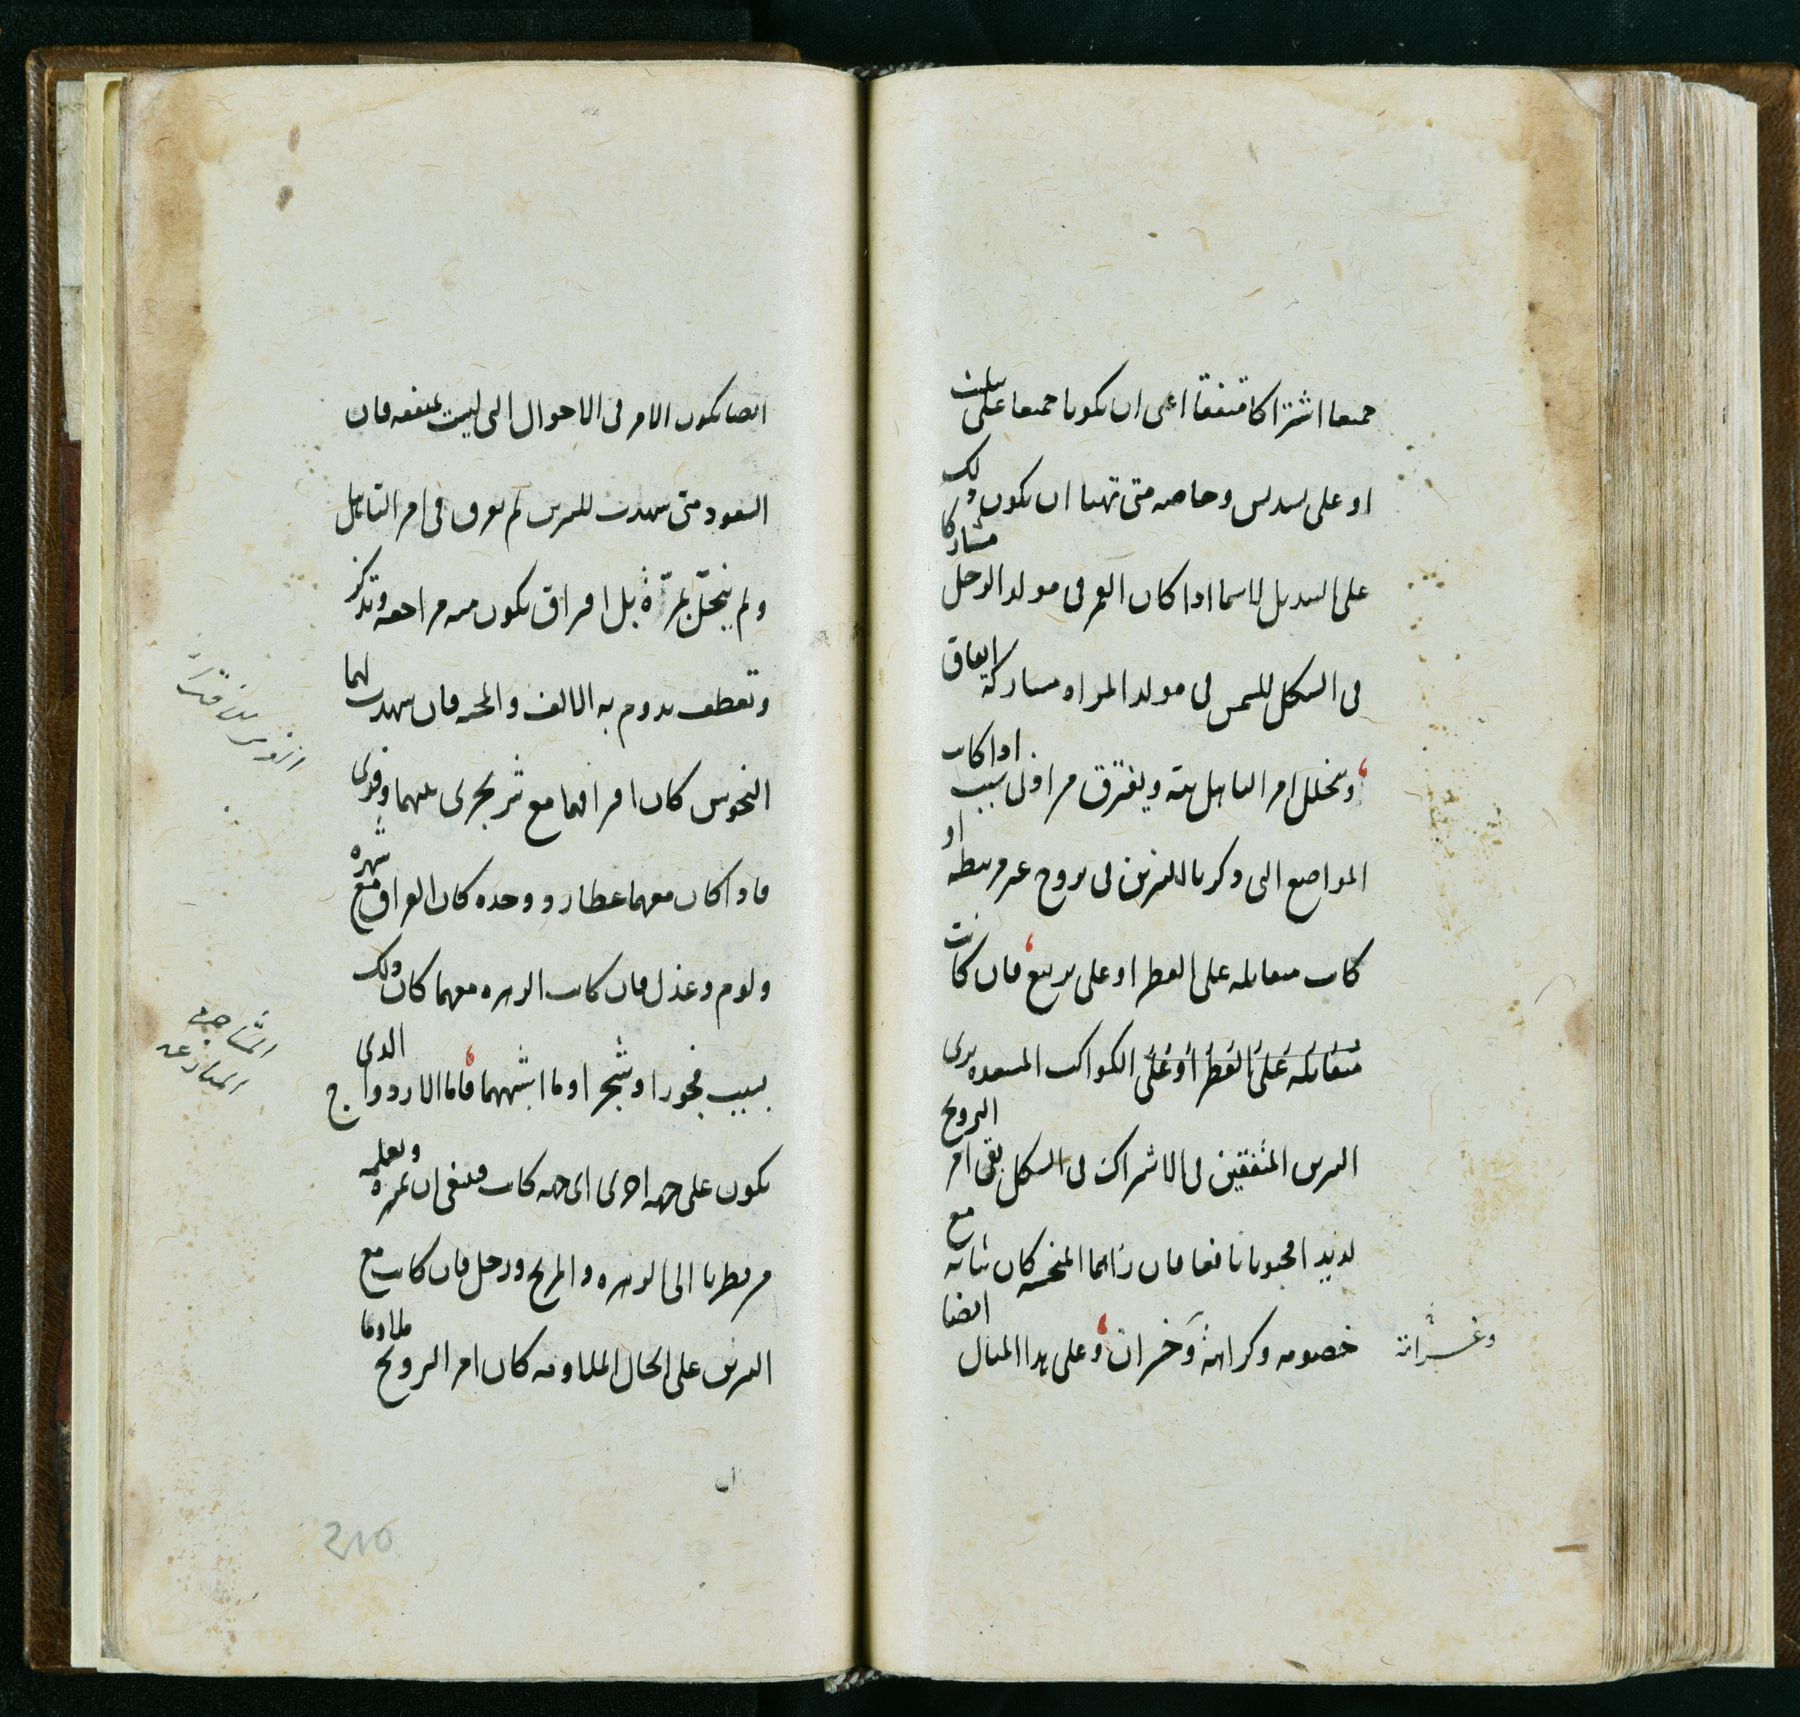 جميعا اشتراكا متفقا اعنى ان يكونا جميعا على تثليث
او على تسديس وخاصه متى تهيا ان يكون ذلك
على التبديل لاسيما اذا كان القمر فى مولد الرجل مشاركا
فى الشكل للشمس فى مولد المراه مشاركة اتفاق
وينحل امر التاهل بتة ويفترق من ادنى سبب اذا كانت
المواضع التى ذكرنا للنيرين فى بروج غير مرتبطه او
كانت متقابله على القطر او على تربيع فان كانت
متقابله على القطر او على الكواكب المسعده ترى
النيرين المتفقين فى الاشتراك فى الشكل بقى امر التزويج
لذيذا محبوبا نافعا فان راتهما المنحسه كان ثباته مع
خصومه وكراهة وخسران وعلى هذا المثال ايضا
ايضا يكون الامر فى الاحوال التى ليست بمتفقه فان
السعود متى شهدت للنيرين لم يعرف فى امر التاهل
ولم ينحل بمرة بل افتراق يكون منه مراجعه وتذكر
وتعطف يدوم به التالف والمحبه فان شهدت لهما
النحوس كان افتراقهما مع شر يجرى بينهما وقذى
فاذا كان معهما عطارد وحده كان الفراق مع شهره
ولوم وعذل فان كانت الزهره معهما كان ذلك
بسبب فجور او شجر او ما اشبههما فاما الازدواج الذى
يكون على جهه اخرى اى جهه كانت فينبغى ان نميزه ونعلمه
من نظرنا الى الزهره والمريخ وزحل فان كانت مع
النيرين على الحال الملاومه كان امر التزويج ملاوما